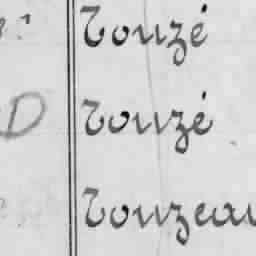 Touzé
D Touzé
Touzeau